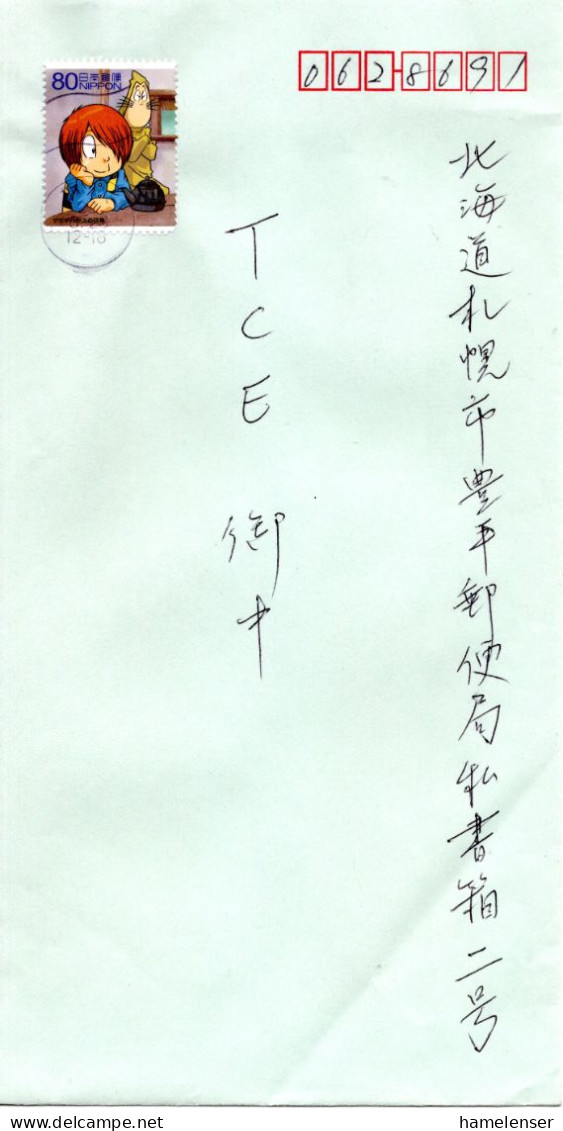 062-8691
北海道札幌市豊平郵便局私書箱二号
TCE御中
80 日本郵便
NIPPON
12-18
hamelenser